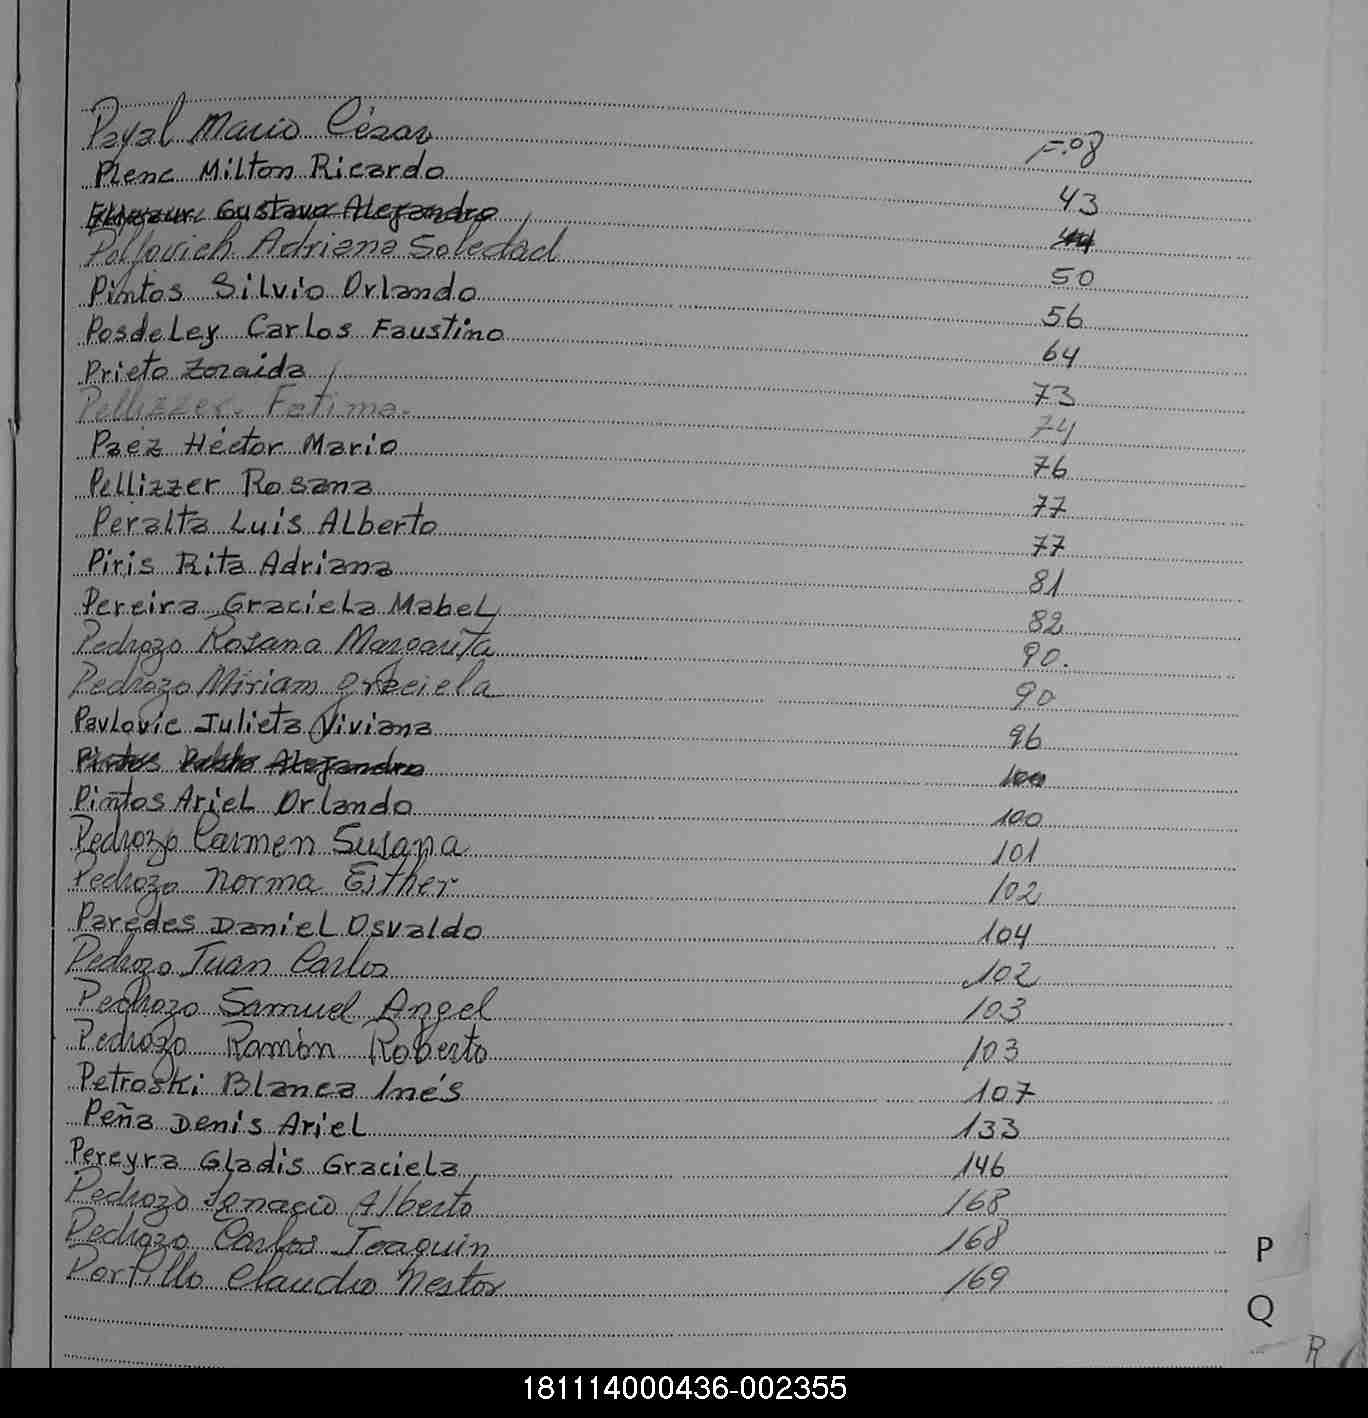 Payal Mario César F.º 8
Plenc Milton Ricardo 43
Gustavo Alejandro
Poljovich Adriana Soledad 50
Pintos Silvio Orlando 56
Posdeley Carlos Faustino 64
Prieto Zoraida 73
Pellizzer. Fatima. 74
Paez Héctor Mario 76
Pellizzer Rosana 77
Peralta Luis Alberto 77
Piris Rita Adriana 81
Pereira Graciela Mabel 82
Pedrozo Rosana Margarita 90.
Pedrozo Miriam Graciela 90
Pavlovic Julieta Viviana 96
Pintos Pablo Alejandro 100
Pintos Ariel Orlando 100
Pedrozo Carmen Susana 101
Pedrozo Norma Esther 102
Paredes Daniel Osvaldo 104
Pedrozo Juan Carlos 102
Pedrozo Samuel Angel 103
Pedrozo Ramón Roberto 103
Petroski Blanca Inés 107
Peña Denis Ariel 133
Pereyra Gladis Graciela 146
Pedrozo Ignacio Alberto 168
Pedrozo Carlos Joaquin 168
Portillo Claudio Nestor 169
P
Q
R
181114000436-002355